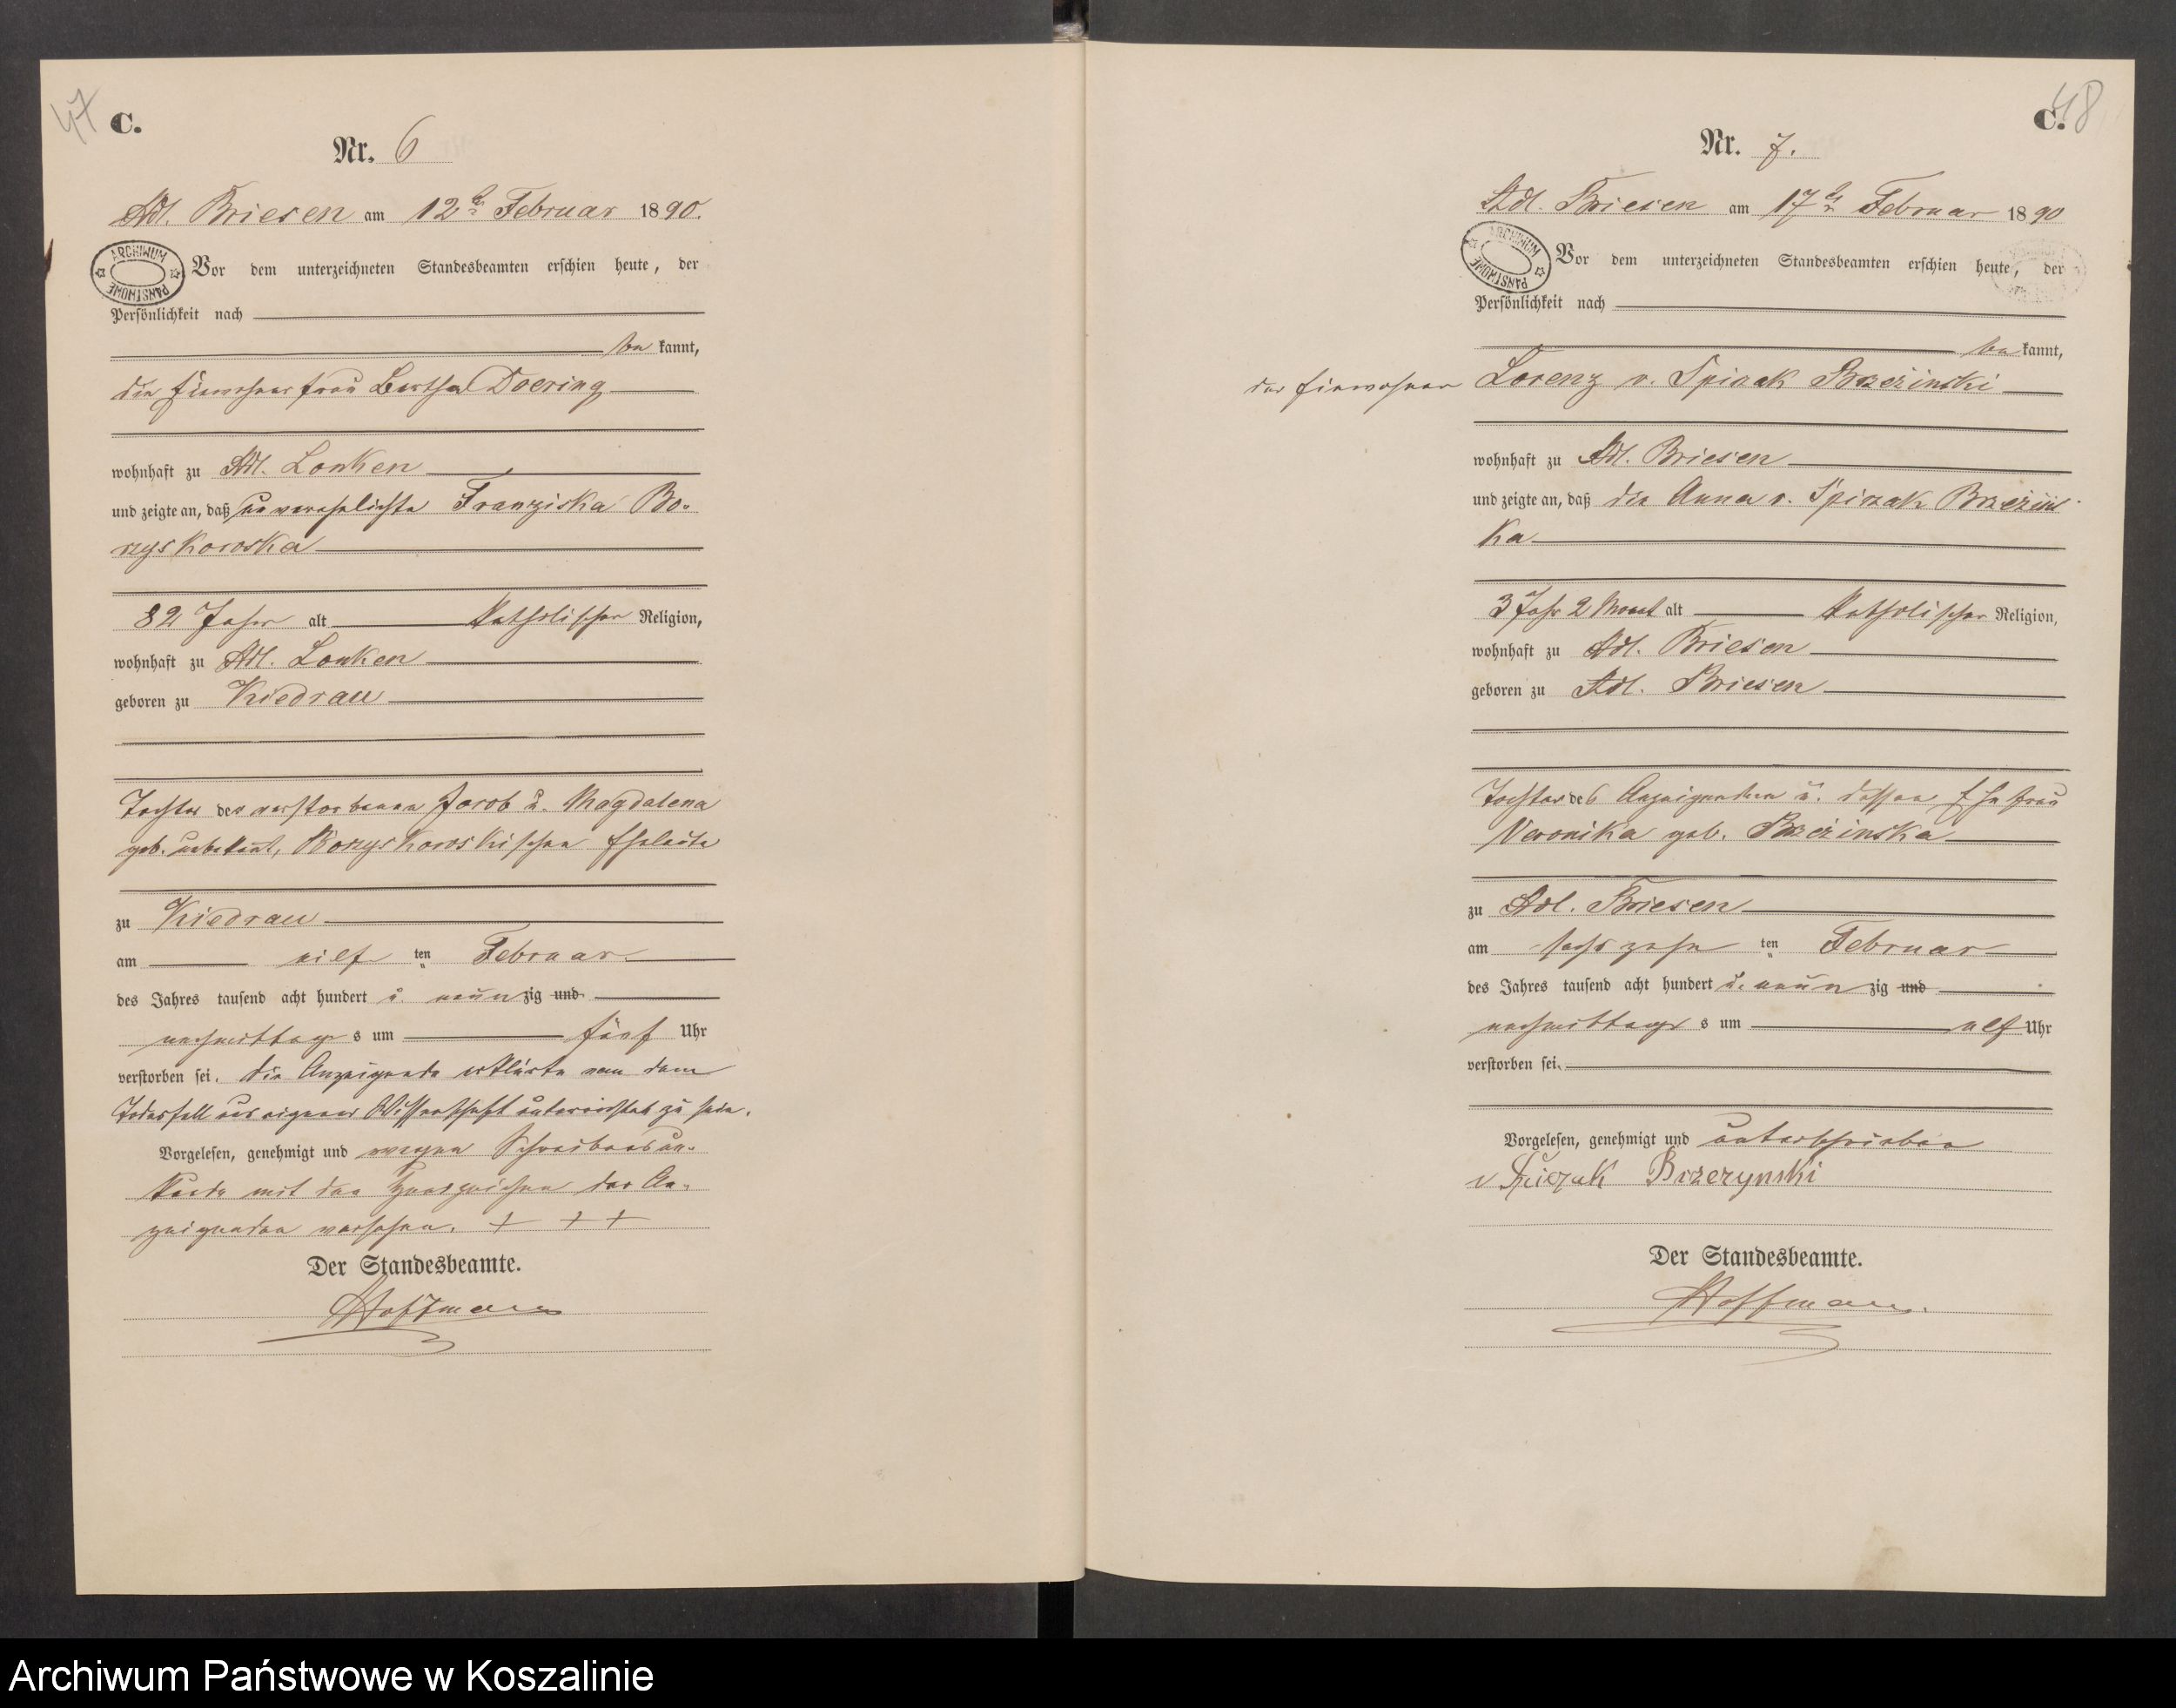 47
C.
Nr. 6
Adl. Briesen am 12ten Februar 1890.
ARCHIWUM PAŃSTWOWE
Vor dem unterzeichneten Standesbeamten erschien heute, der
Persönlichkeit nach
be kannt,
die Einwohnerfrau Bertha Doering
wohnhaft zu Adl. Lonken
und zeigte an, daß unverehelichte Franziska Bo-
rzyskowska
82 Jahr alt katholischer Religion,
wohnhaft zu Adl. Lonken
geboren zu Kiedrau
Tochter der verstorbenen Jacob u. Magdalena
geb. unbekant, Borzyskowskischen Eheleute
zu Kiedrau
am eilf ten Februar
des Jahres tausend acht hundert u neunzig und
nachmittag s um fünf Uhr
verstorben sei. die Anzeigende erklärte von dem
Todesfall aus eigener Wissenschaft unterrichtet zu sein.
Vorgelesen, genehmigt und wegen Schreibensun-
kunde mit den Handzeichen der An-
zeigenden versehen. + + +
Der Standesbeamte.
Hoffmann
48
C.
Nr. 7.
Adl. Briesen am 17ten Februar 1890
ARCHIWUM PAŃSTWOWE
Vor dem unterzeichneten Standesbeamten erschien heute, der
Persönlichkeit nach
be kannt,
der Einwohner Lorenz v. Spiczak Brzezinski
wohnhaft zu Adl. Briesen
und zeigte an, daß die Anna v. Spiczak Brzezins
ka
3 Jahr 2 Monat alt katholischer Religion,
wohnhaft zu Adl. Briesen
geboren zu Adl. Briesen
Tochter des Anzeigenden u. dessen Ehefrau
Veronika geb. Brzezinska
zu Adl. Briesen
am sechszehn ten Februar
des Jahres tausend acht hundert u. neun zig und
nachmittags s um elf Uhr
verstorben sei.
Vorgelesen, genehmigt und unterschrieben
v Spiczak Brzezynski
Der Standesbeamte.
Hoffmann.
Archiwum Państwowe w Koszalinie